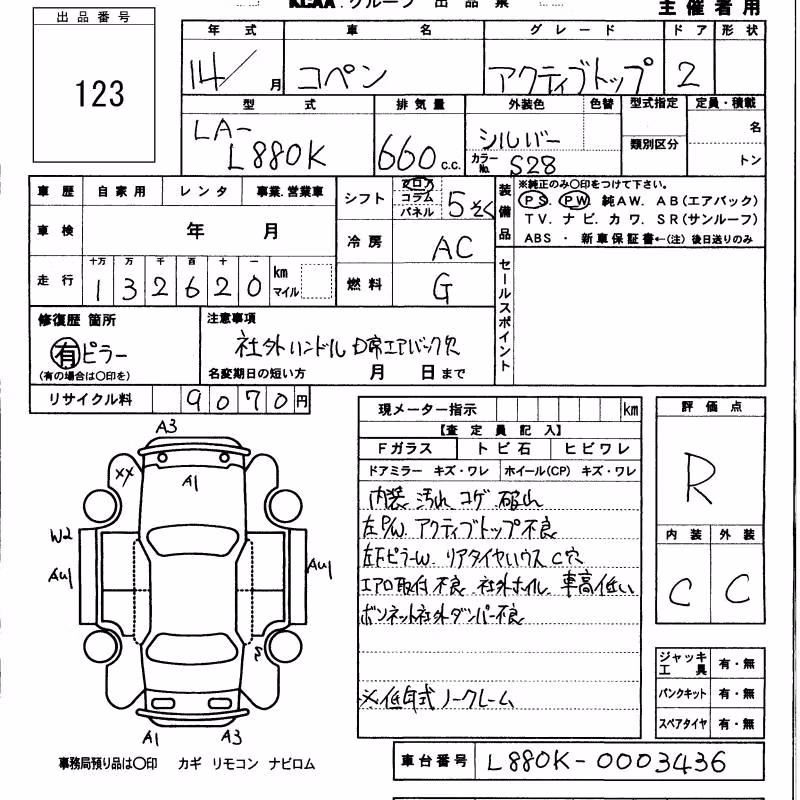 KCAA.グループ 出品票
主催者用
出品番号
123
年式 車名 グレード ドア 形状
14/ 月 コペン アクティブトップ 2
型式 排気量 外装色 色替 型式指定 定員・積載
LA-
L880K 660 c.c. シルバー カラーNo. S28 類別区分 名
トン
車歴 自家用 レンタ 事業.営業車
車検 年 月
走行 十万 万 千 百 十 一
1 3 2 6 2 0 km マイル
シフト フロア コラム パネル 5そく
冷房 AC
燃料 G
装備品
※純正のみ〇印をつけて下さい。
PS. PW. 純AW. AB(エアバック)
TV. ナビ. カワ. SR(サンルーフ)
ABS ・ 新車保証書←(注)後日送りのみ
セールスポイント
修復歴 箇所
有 ピラー
(有の場合は〇印を)
注意事項
社外ハンドル D席エアバック欠
名変期日の短い方 月 日まで
リサイクル料 9 0 7 0 円
現メーター指示 km
【査定員記入】
Fガラス トビ石 ヒビワレ
ドアミラー キズ・ワレ ホイール(CP) キズ・ワレ
内装 汚れ コゲ 破れ
左P/W. アクティブトップ不良
左Fピラーw. リアタイヤハウス C穴
エアロ取付不良 社外ホイル 車高低い
ボンネット社外ダンパー不良
※低年式 ノークレーム
評価点
R
内装 外装
C C
ジャッキ工具 有・無
パンクキット 有・無
スペアタイヤ 有・無
A3
XX
A1
W2
AU1
AU1
A1 A3
事務局預り品は〇印 カギ リモコン ナビロム
車台番号 L880K-0003436